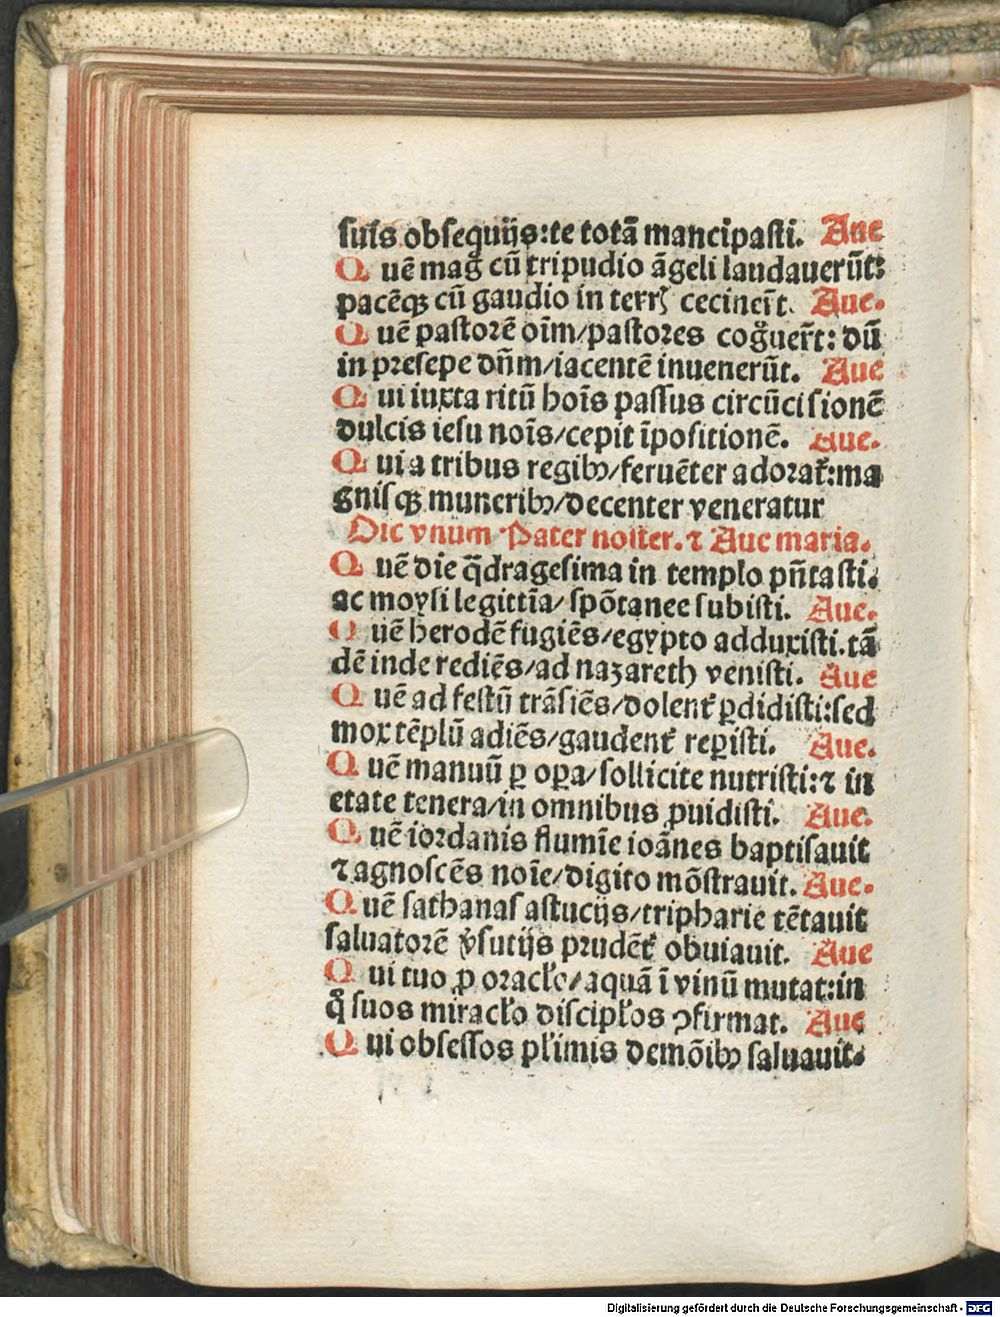 suis obsequijs:te totā mancipasti. Aue
Quē mag̃ cū tripudio āgeli laudauerūt:
pacēqꝫ cū gaudio in terrꝭ cecinerṫ. Aue.
Quē pastorē oīm/pastores cog̃uer̃t: dū
in presepe dn̄m/iacentē inuenerūt. Aue
Qui iuxta ritū hoīs passus circūcisionē
dulcis iesu noīs/cepit īpositionē. Aue.
Qui a tribus regibꝰ/feruēter adorat̉:ma
gnisqꝫ muneribꝰ/decenter veneratur
Dic vnum Pater noster. ⁊ Aue maria.
Quē die q̄dragesima in templo pn̄tasti.
ac moysi legittīa/spōtanee subisti. Aue.
Quē herodē fugiēs/egypto adduxisti.tā
dē inde rediēs/ad nazareth venisti. Aue
Quē ad festū trāsiēs/dolent̉ ꝑdidisti:sed
mox tēplū adiēs/gaudent̉ reꝑisti. Aue.
Quē manuū ꝑ oꝑa/sollicite nutristi:⁊ in
etate tenera/in omnibus ꝓuidisti. Aue.
Quē iordanis flumīe ioānes baptisauit
⁊ agnoscēs noīe/digito mōstrauit. Aue.
Quē sathanas astucijs/tripharie tētauit
saluatorē v̉sutijs prudēt̉ obuiauit. Aue
Qui tuo ꝓ oracl̉o/aquā ī vinū mutat:in
q̊ suos miracl̉o discipl̉os ꝯfirmat. Aue
Qui obsessos pl̉imis demōibꝰ saluauit.
Digitalisierung gefördert durch die Deutsche Forschungsgemeinschaft - DFG